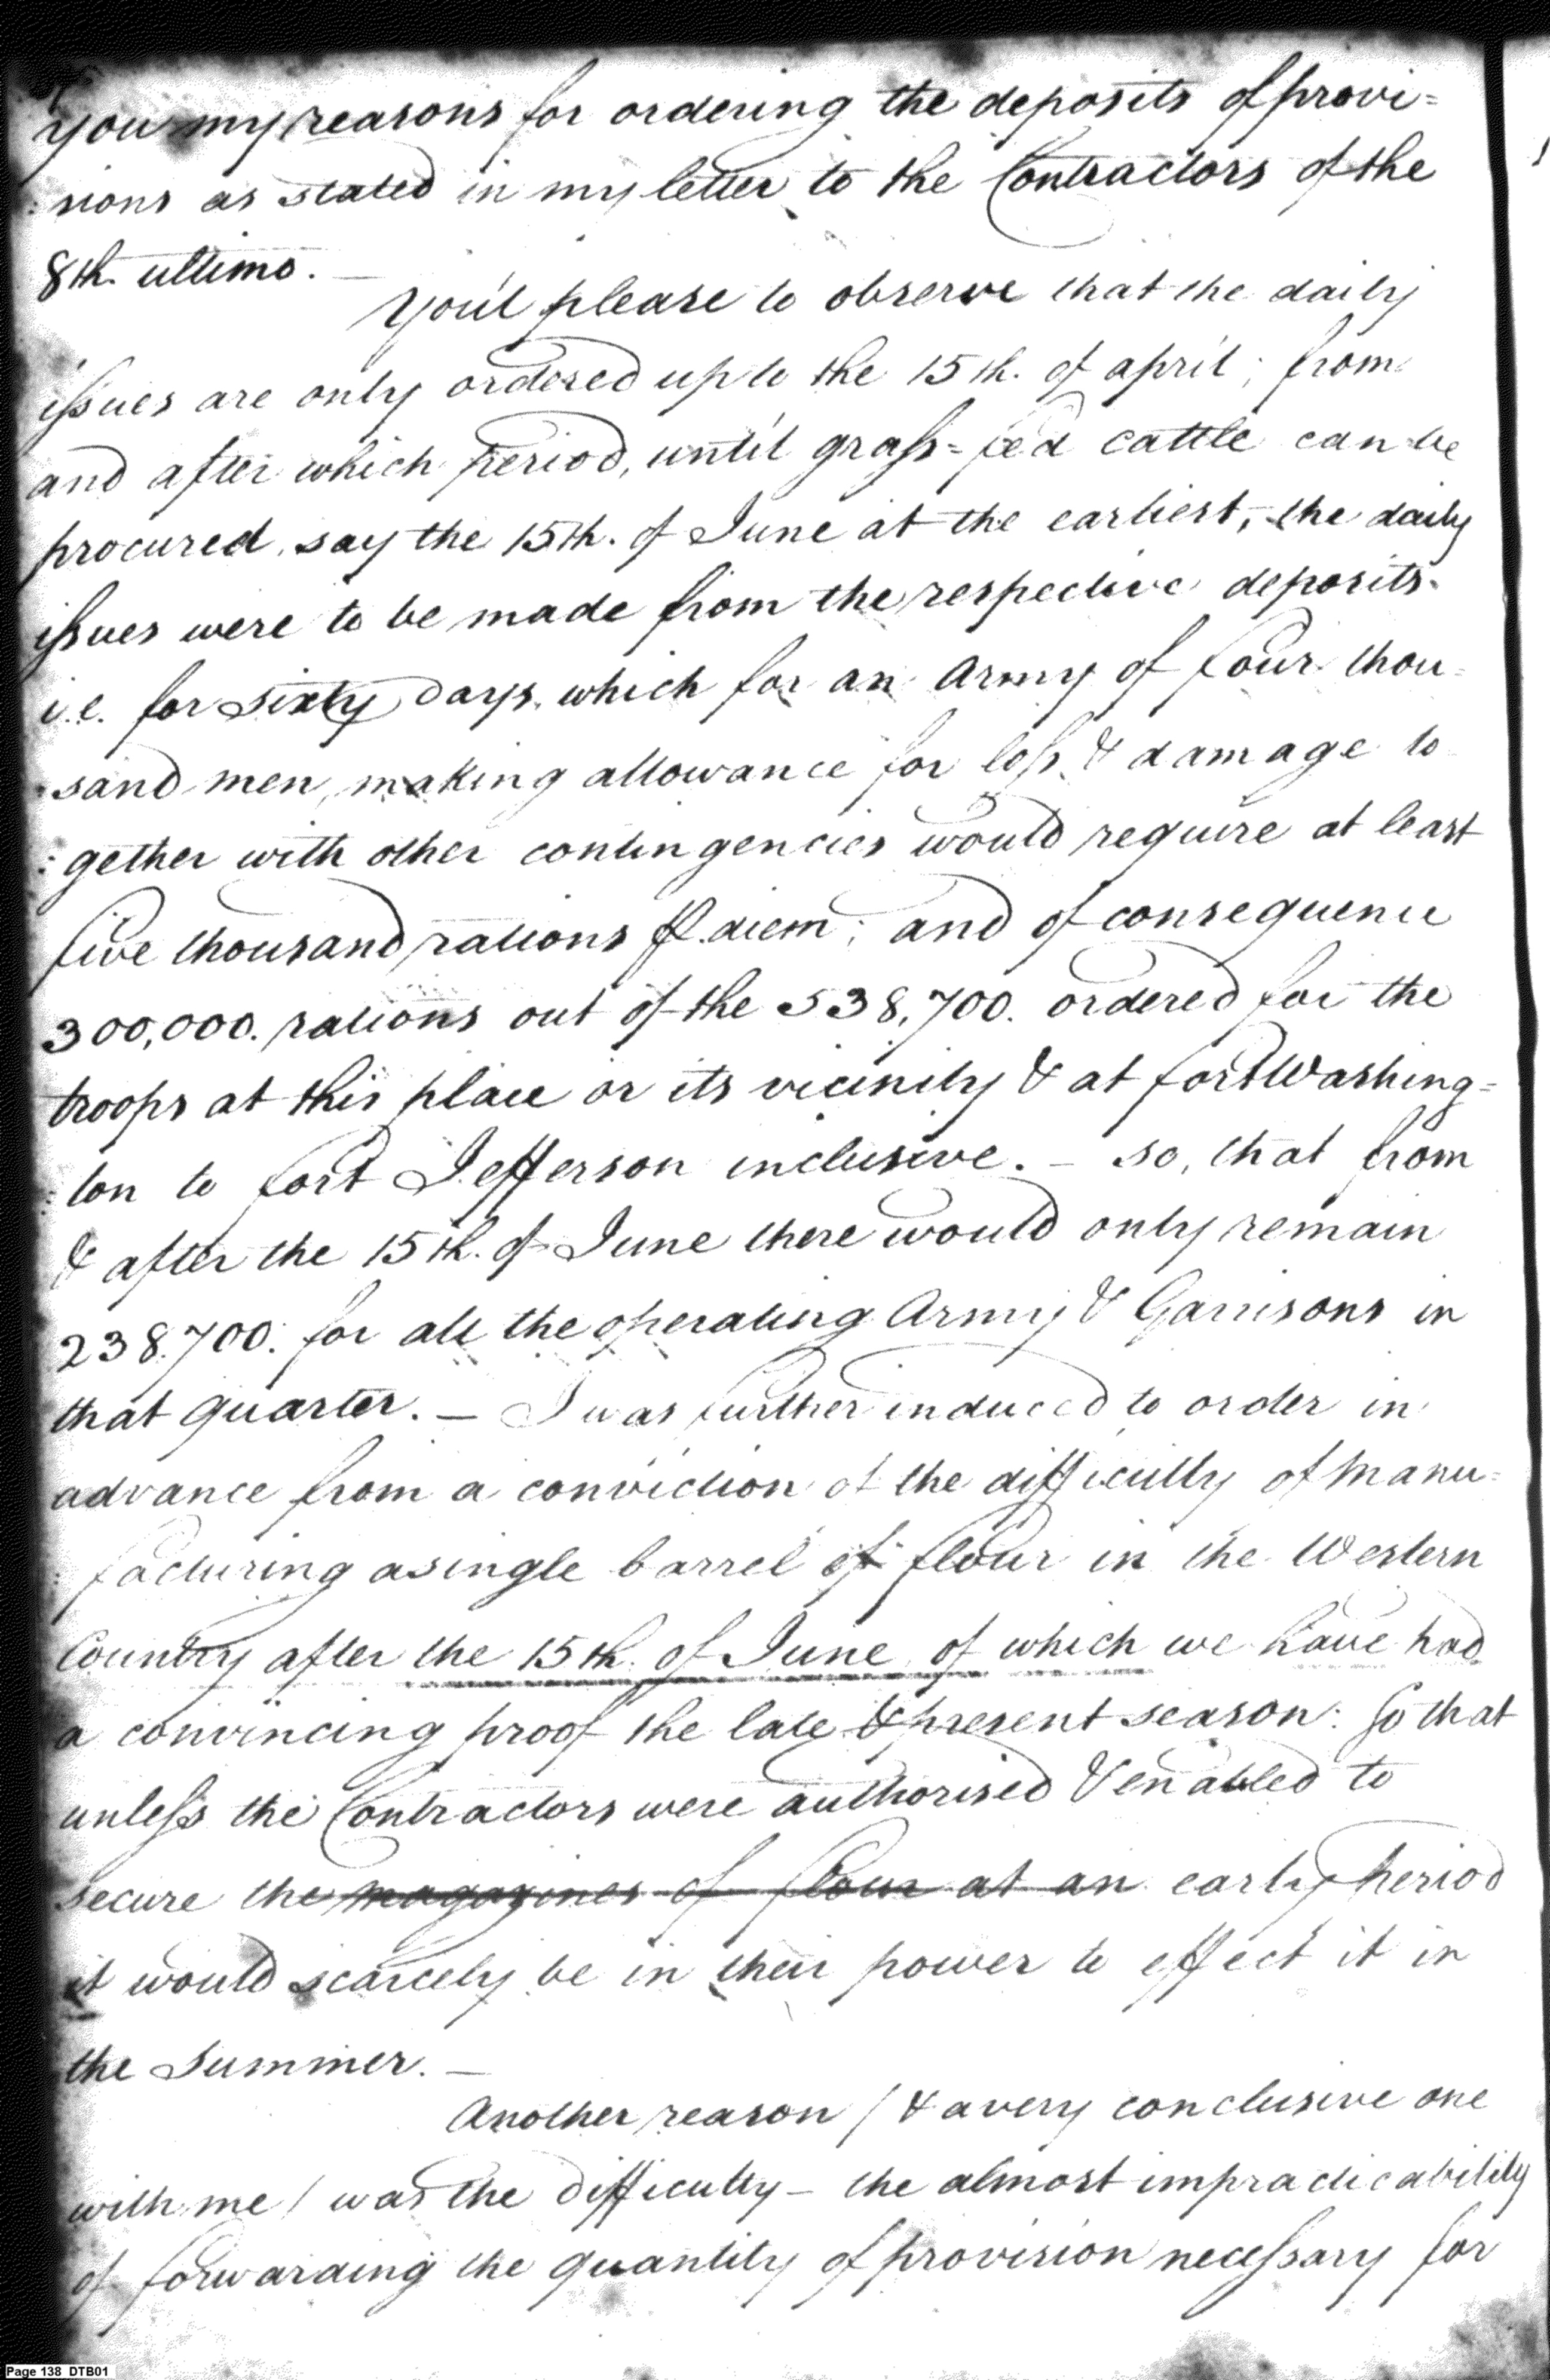 you my reasons for ordering the deposits of provi=
:sions as stated in my letter to the Contractors of the
8th. ultimo. —
You'l please to observe that the daily
issues are only ordered up to the 15th. of april; from
and after which period, until grass=fed cattle can be
procured, say the 15th. of June at the earliest, the daily
issues were to be made from the respective deposits
i.e. for sixty days, which for an Army of four thou
:sand men, making allowance for loss & damage to
:gether with other contingencies would require at least
five thousand rations ⅌. diem; and of consequence
300,000. rations out of the 538,700. ordered for the
troops at this place or its vicinity & at fort Washing=
:ton to fort Jefferson inclusive. — so, that from
& after the 15th. of June there would only remain
238.700. for all the operating Army & Garrisons in
that quarter. — I was further induced to order in
advance from a conviction of the difficulty of manu=
:facturing a single barrel of flour in the Western
Country after the 15th. of June, of which we have had
a convincing proof the late & present season: So that
unless the Contractors were authorised & enabled to
secure the magazines of flour at an early period
it would scarcely be in their power to effect it in
the Summer. —
Another reason / & a very conclusive one
with me / was the difficulty — the almost impracticability
of forwarding the quantity of provision necessary for
Page 138 DTB01